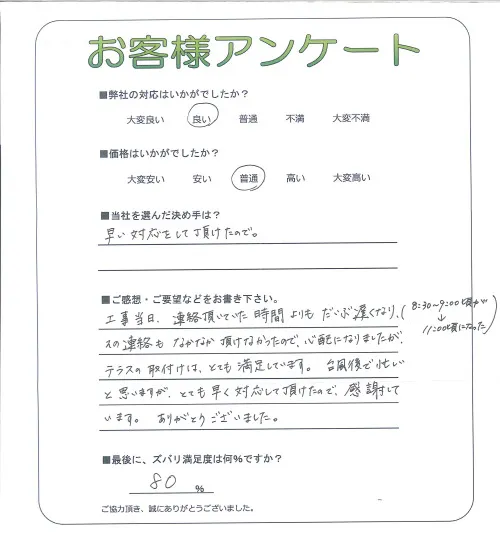 お客様アンケート
■弊社の対応はいかがでしたか？
大変良い 良い 普通 不満 大変不満
■価格はいかがでしたか？
大変安い 安い 普通 高い 大変高い
■当社を選んだ決め手は？
早い対応をして頂けたので。
■ご感想・ご要望などをお書き下さい。
工事当日、連絡頂いていた時間よりもだいぶ遅くなり、(8:30〜9:00頃が
↓
11:00頃になった)
その連絡もなかなか頂けなかったので、心配になりましたが、
テラスの取付けは、とても満足しています。台風後で忙しい
と思いますが、とても早く対応して頂けたので、感謝して
います。ありがとうございました。
■最後に、ズバリ満足度は何%ですか？
80 %
ご協力頂き、誠にありがとうございました。